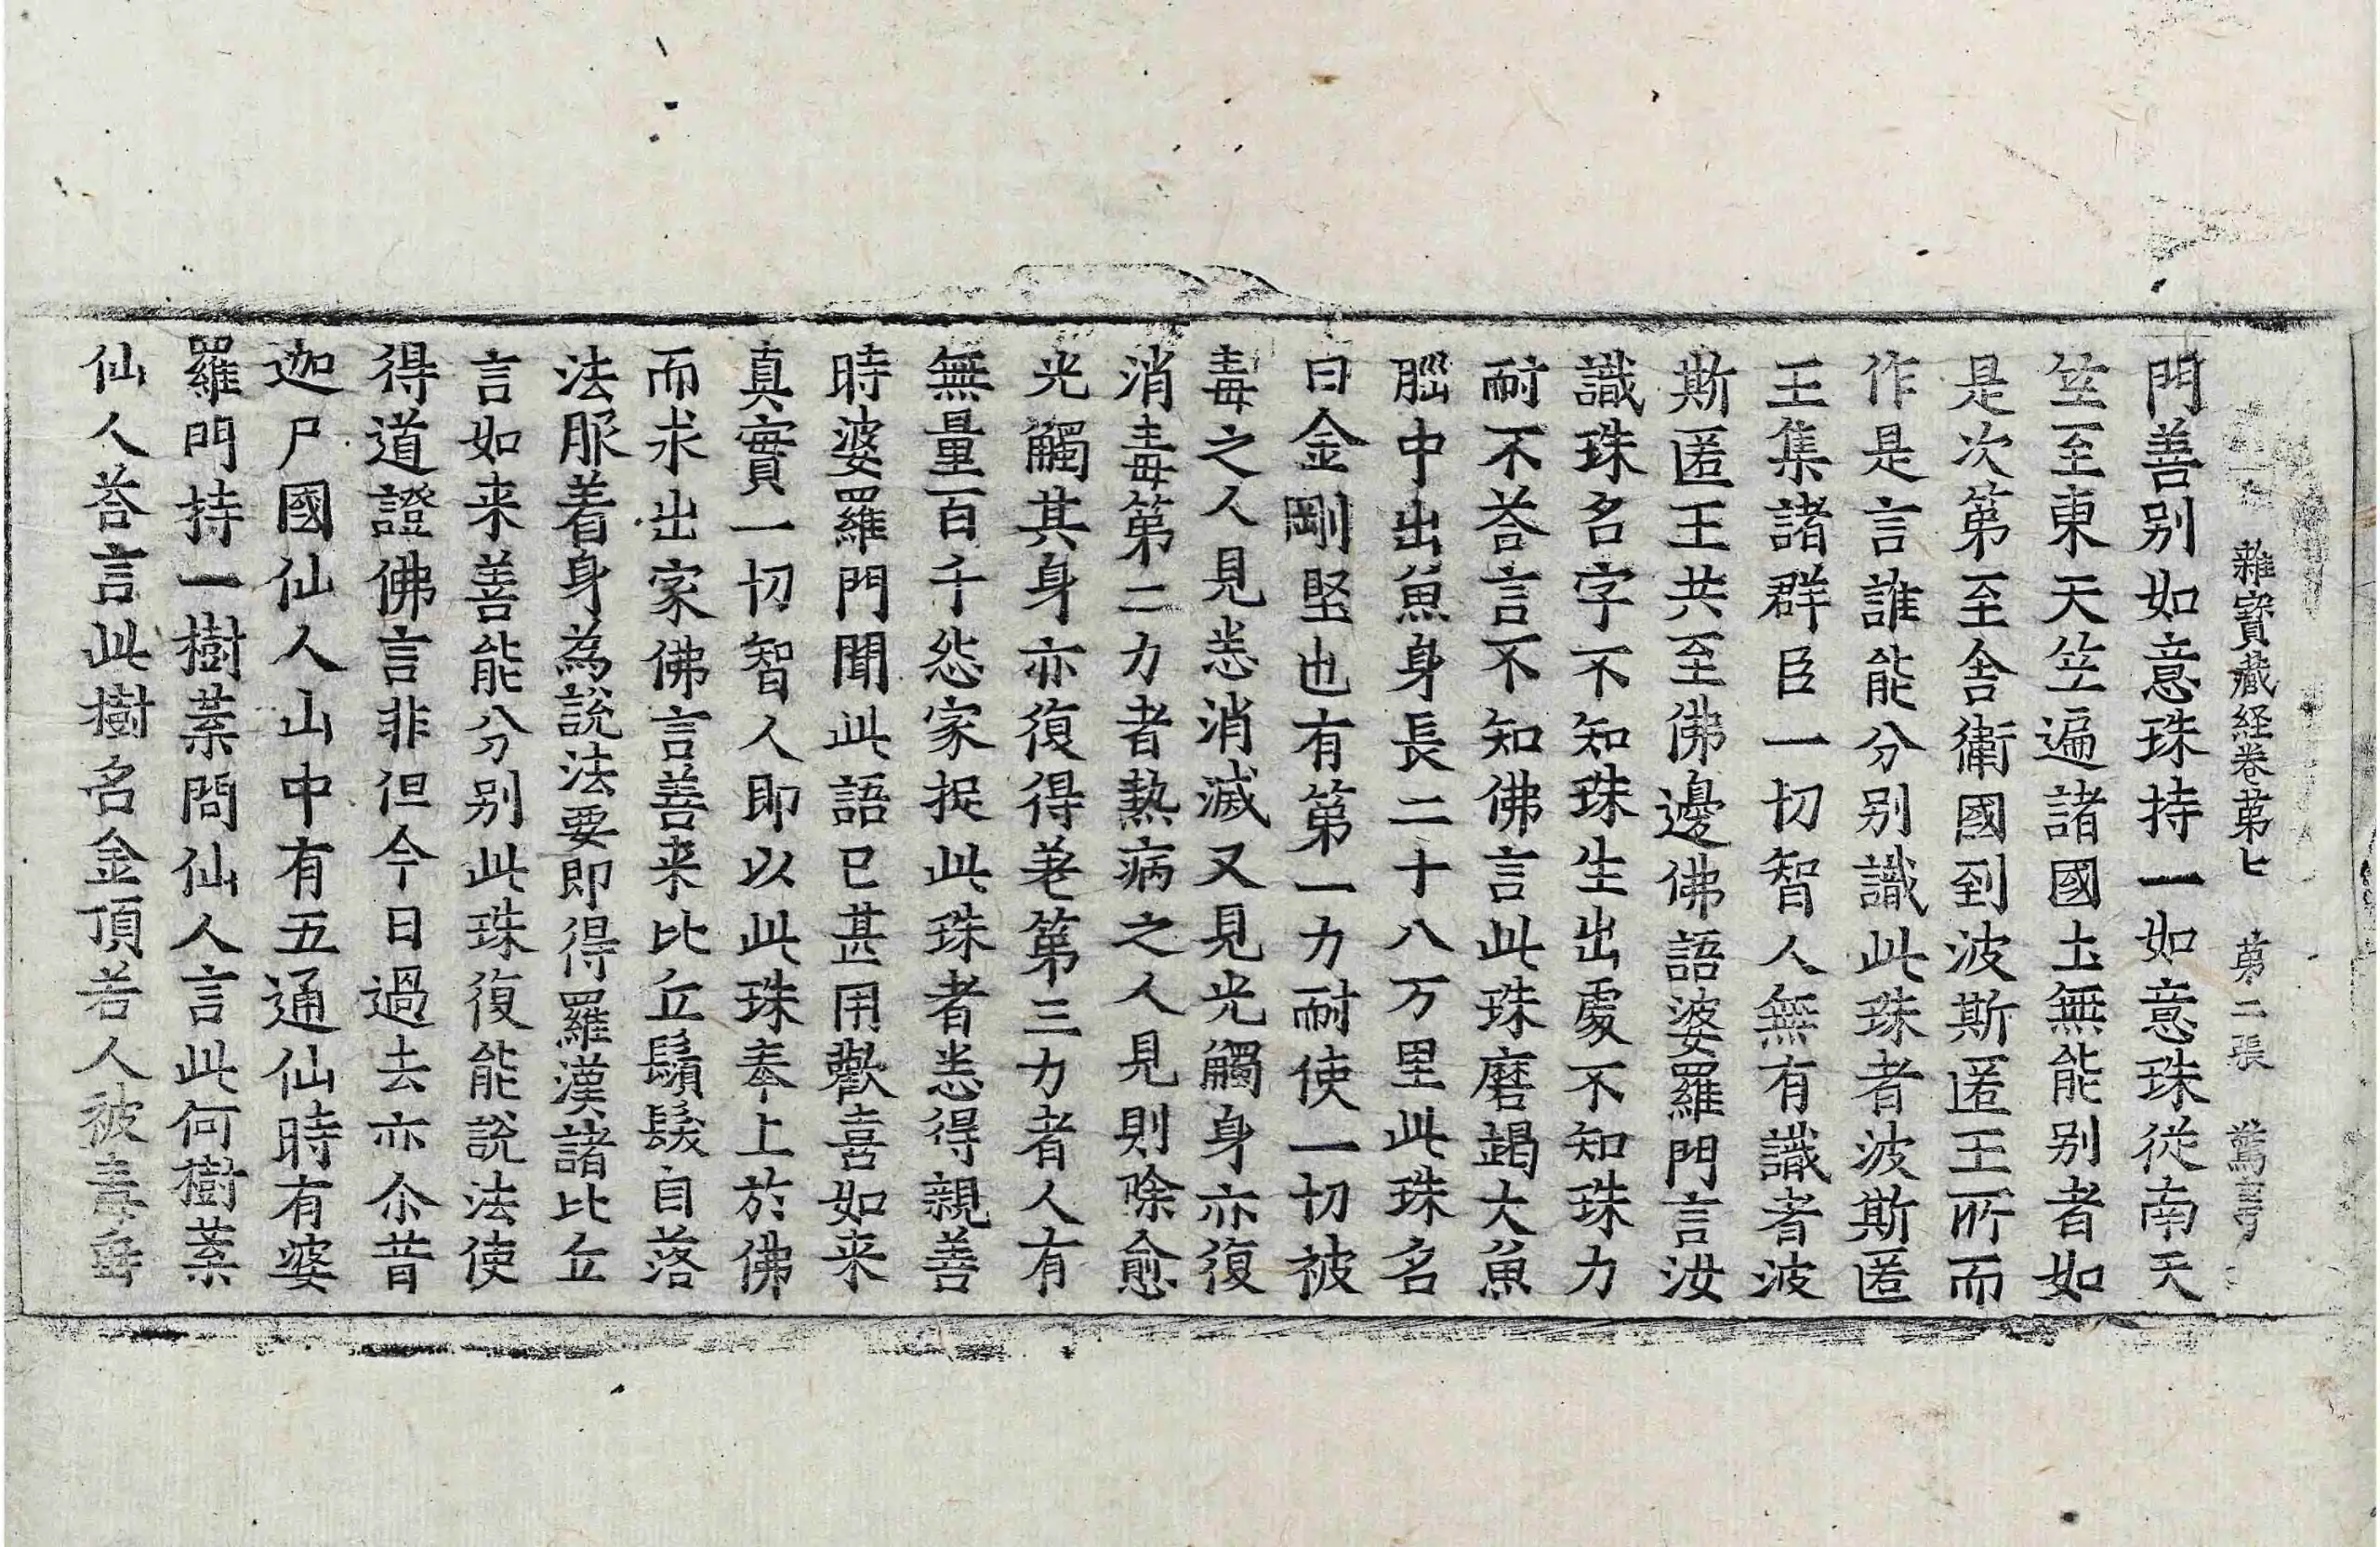 雜寶藏經卷第七 第二張 驚
門善別如意珠持一如意珠從南天
竺至東天竺遍諸國土無能別者如
是次第至舍衛國到波斯匿王所而
作是言誰能分別識此珠者波斯匿
王集諸群臣一切智人無有識者波
斯匿王共至佛邊佛語婆羅門言汝
識珠名字不知珠生出處不知珠力
耐不荅言不知佛言此珠磨竭大魚
腦中出魚身長二十八万里此珠名
曰金剛堅也有第一力耐使一切被
毒之人見悉消滅又見光觸身亦復
消毒第二力者熱病之人見則除愈
光觸其身亦復得差第三力者人有
無量百千怨家捉此珠者悉得親善
時婆羅門聞此語已甚用歡喜如来
真實一切智人即以此珠奉上於佛
而求出家佛言善来比丘鬚髮自落
法服着身為說法要即得羅漢諸比丘
言如来善能分別此珠復能說法使
得道證佛言非但今日過去亦尒昔
迦尸國仙人山中有五通仙時有婆
羅門持一樹葉問仙人言此何樹葉
仙人荅言此樹名金頂若人被毒垂